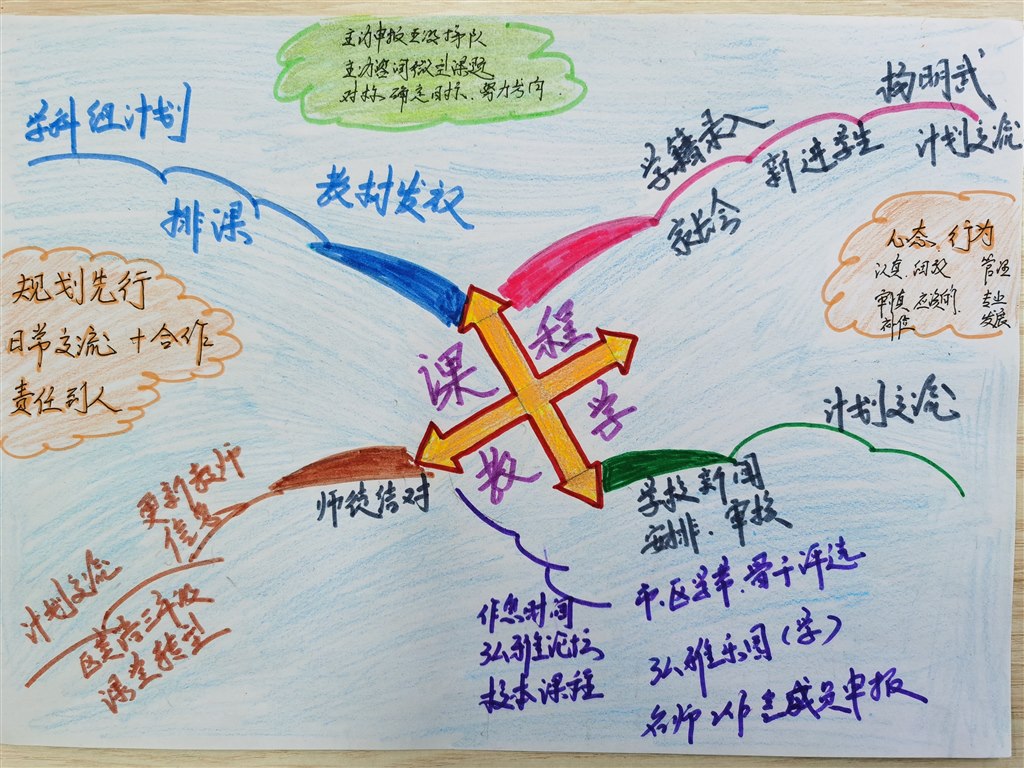 主动申报
对标、确定目标、努力书写
学科组计划
排课
教材发放
学籍录入
家长会
新进学生
杨明武
计划交流
规划先行
日常交流 + 合作
责任到人
心态、行为
认真、细致
管理
专业
发展
课程
教学
师徒结对
更新教师
信息
计划交流
三年级
课堂转型
计划交流
学校新闻
安排、审核
作息时间
弘雅论坛
校本课程
市、区学举、骨干评选
弘雅乐园（学）
名师工作室成员申报